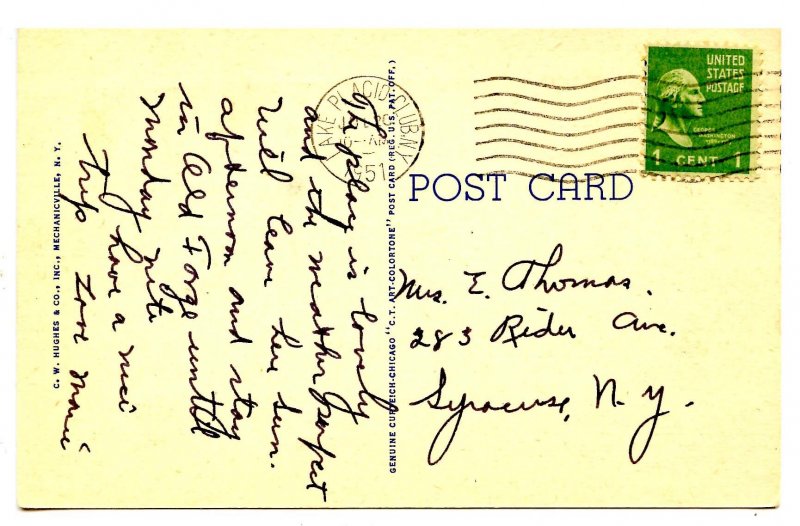 The place is lovely
and the weather perfect
Will leave here Sun.
afternoon and stay
in Old Forge until
Monday nite
I have a nice
trip Love Marie
C. W. HUGHES & CO., INC., MECHANICVILLE, N. Y.
GENUINE CURTEICH-CHICAGO "C.T. ART-COLORTONE" POST CARD (REG. U.S. PAT. OFF.)
LAKE PLACID CLUB, N.Y.
1951
UNITED
STATES
POSTAGE
GEORGE
WASHINGTON
1 CENT 1
POST CARD
Mrs. E. Thomas.
283 Rider Ave.
Syracuse, N. Y.